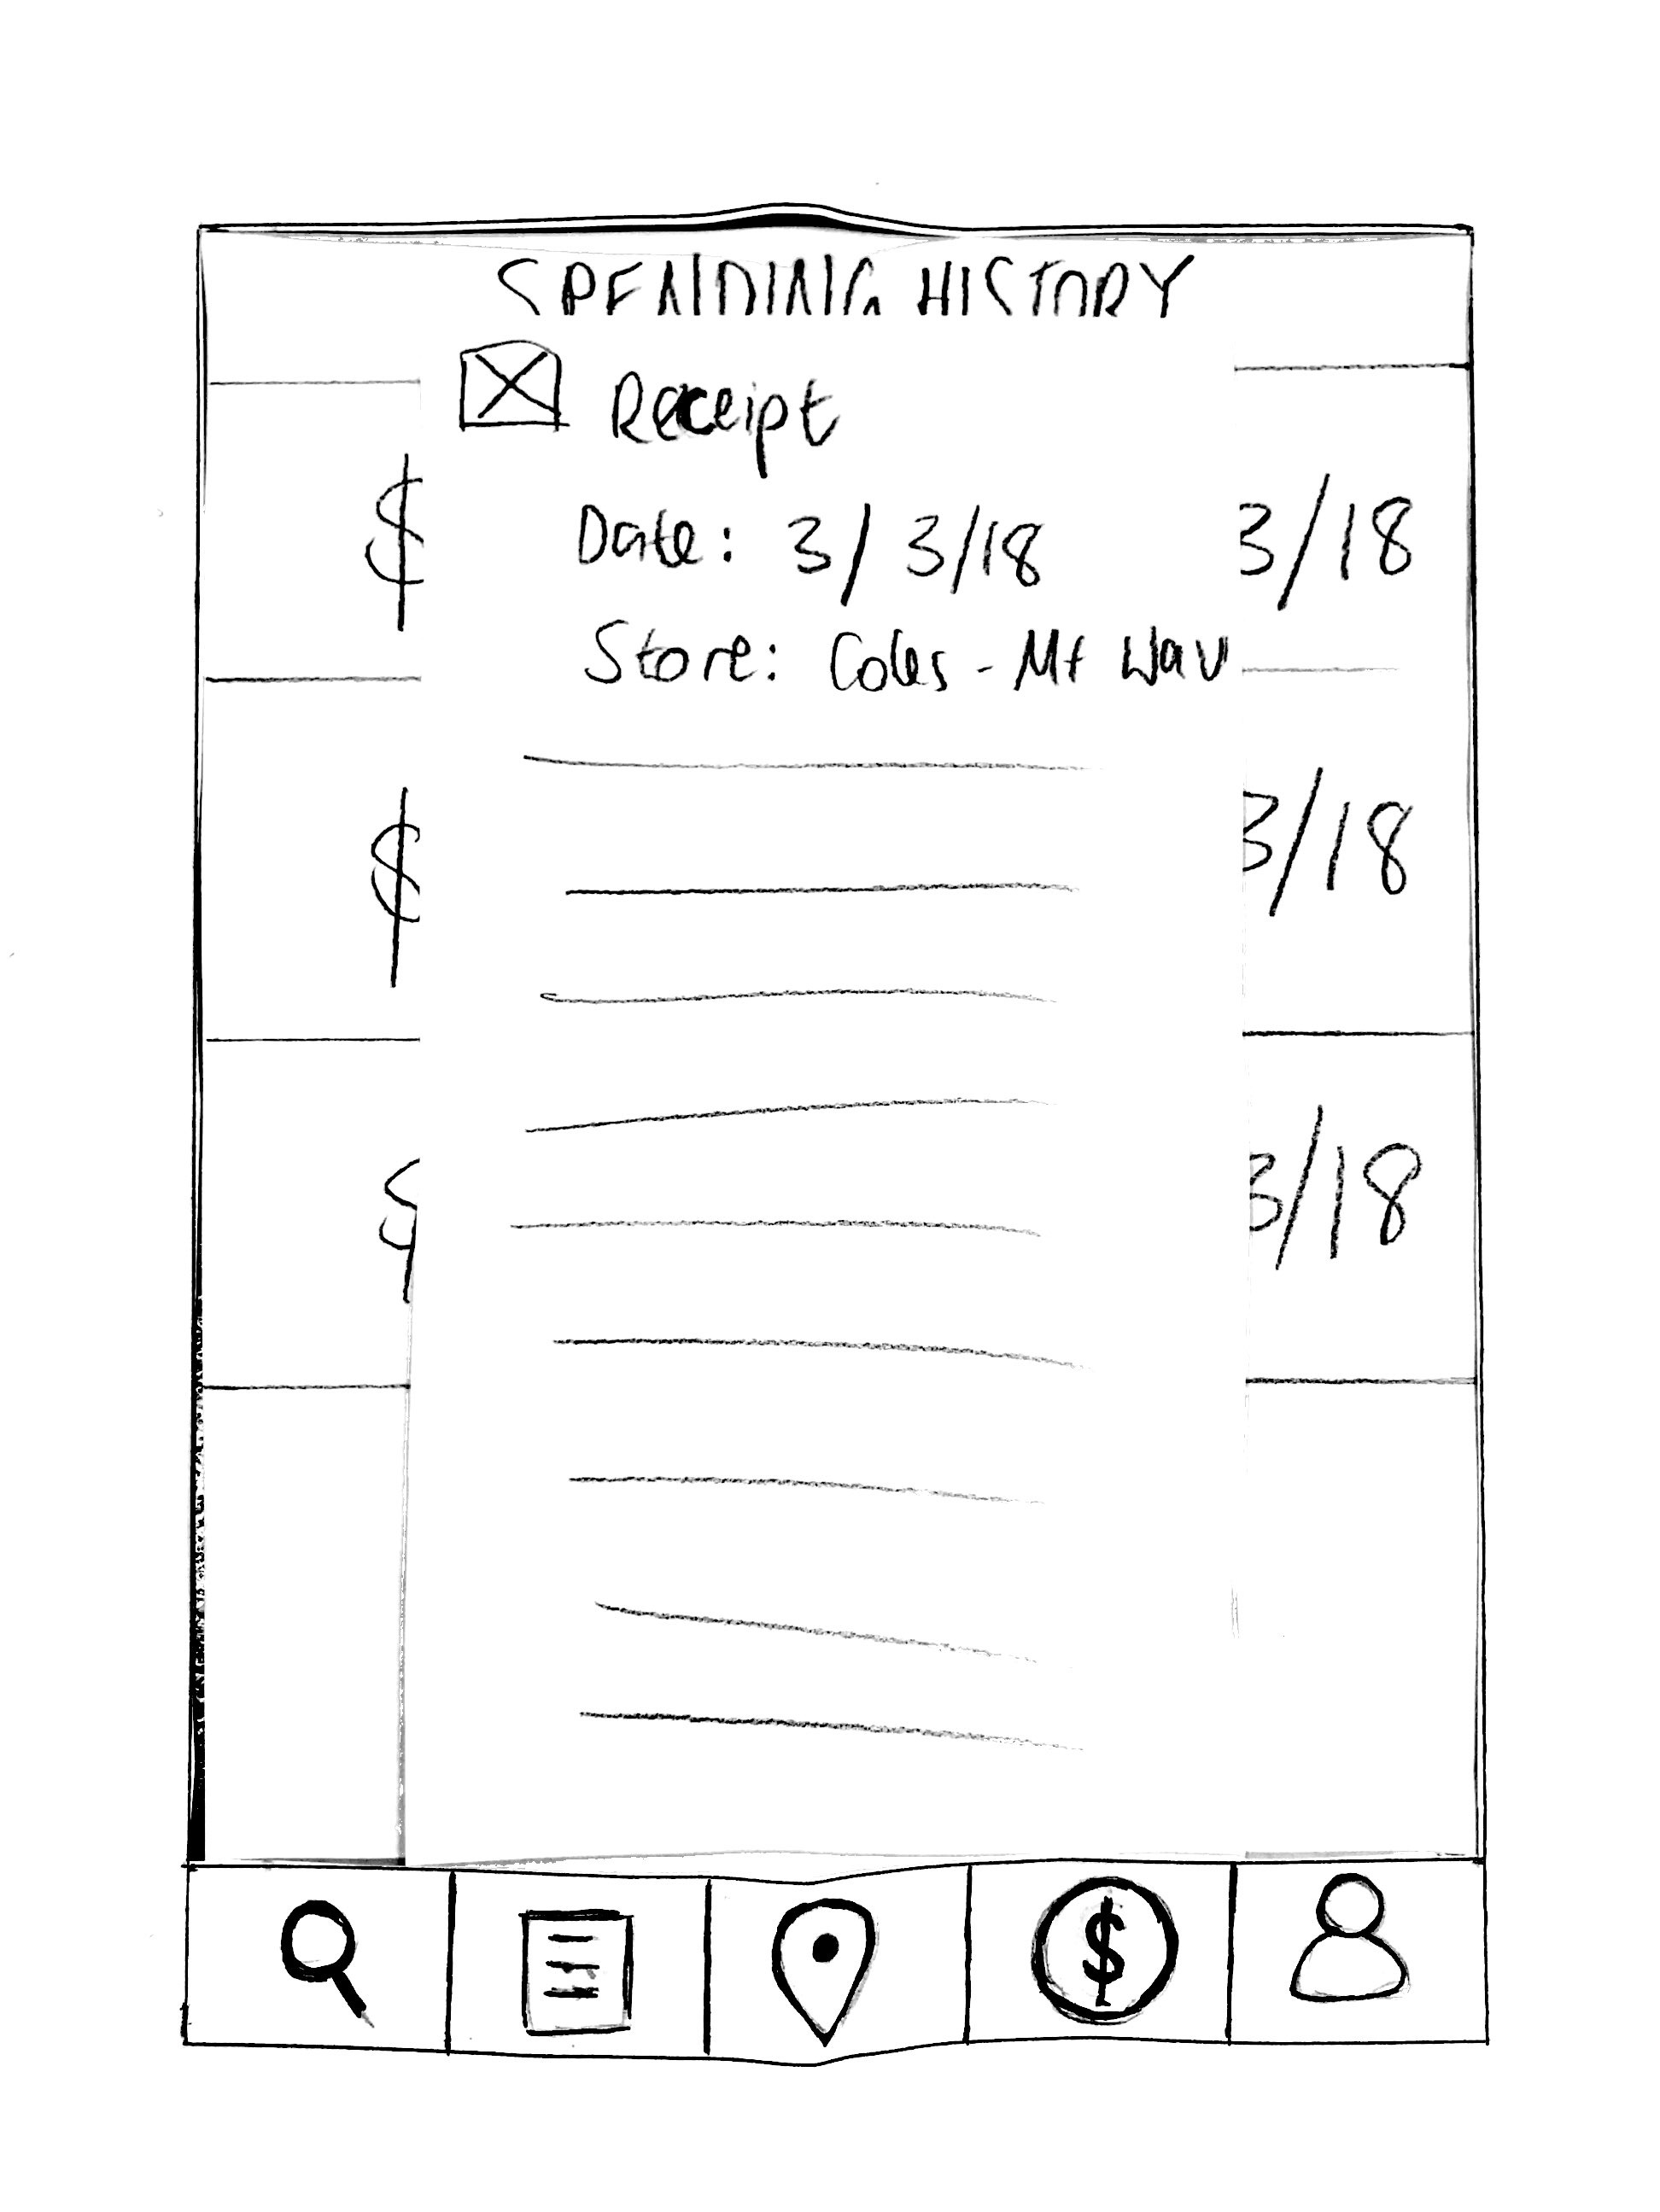 SPENDING HISTORY
Receipt
$ 3/18
Date: 3/3/18
Store: Coles - Mt Wav
$ 3/18
$ 3/18
$